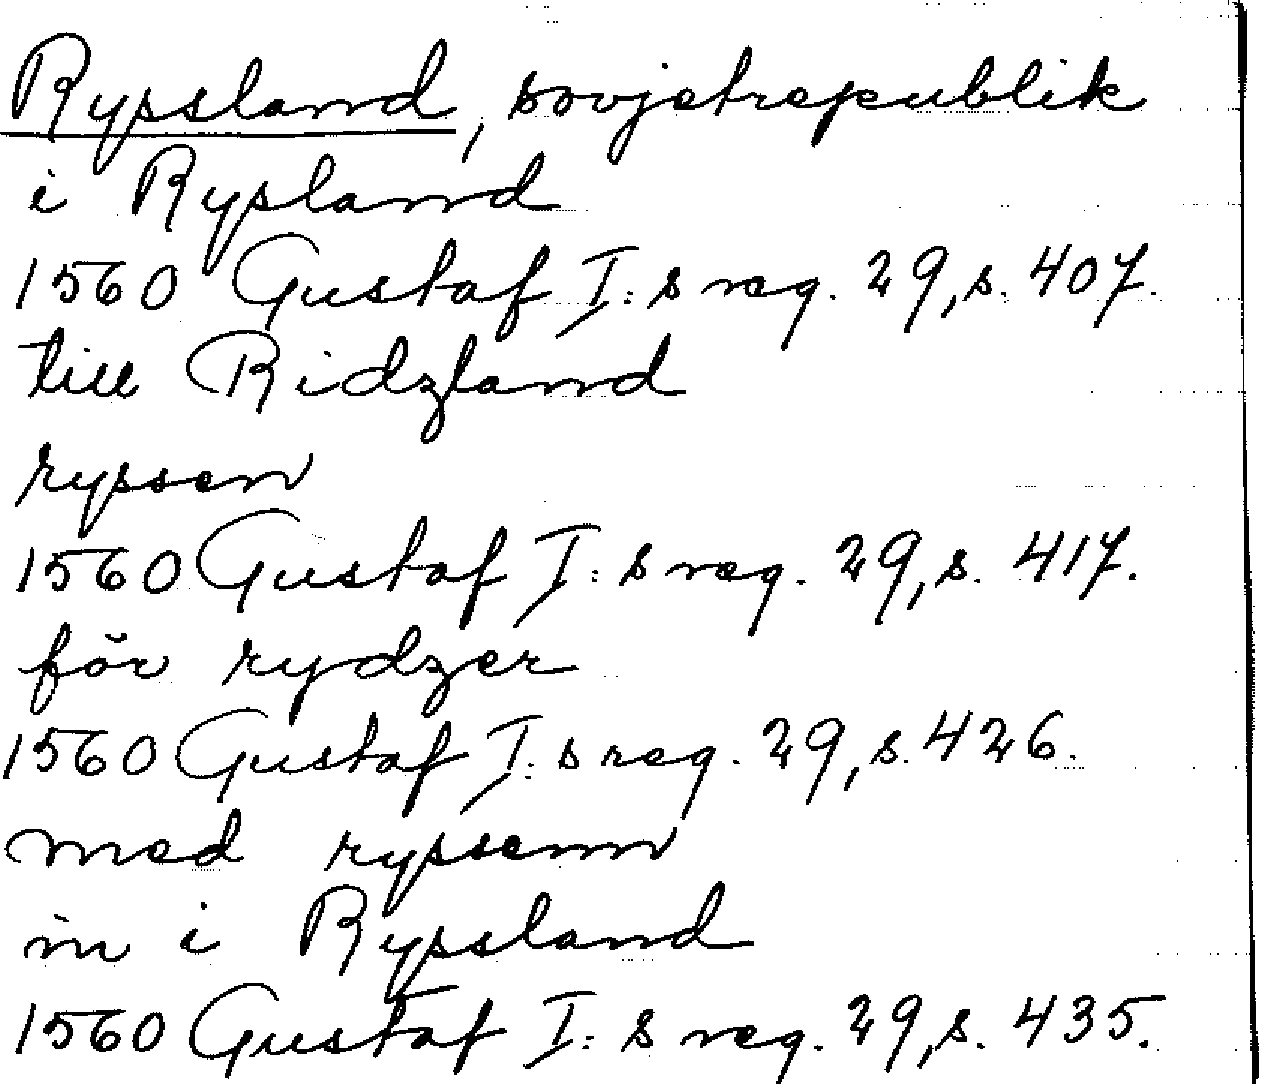 Ryssland, sovjetrepublik
i Rysland
1560 Gustaf I:s reg. 29, s. 407.
till Ridzland
ryssen
1560 Gustaf I:s reg. 29, s. 417.
för rydzer
1560 Gustaf I:s reg. 29, s. 426.
med ryssenn
in i Ryssland
1560 Gustaf I:s reg. 29, s. 435.